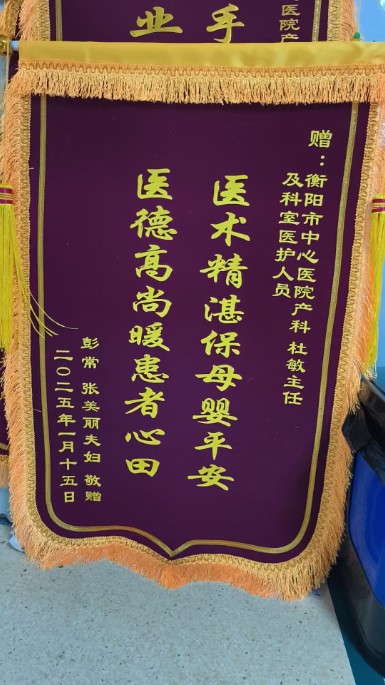 医院产
手
业
赠：衡阳市中心医院产科 杜敏主任
及科室医护人员
医术精湛保母婴平安
医德高尚暖患者心田
彭常 张美丽夫妇 敬赠
二〇二五年一月十五日